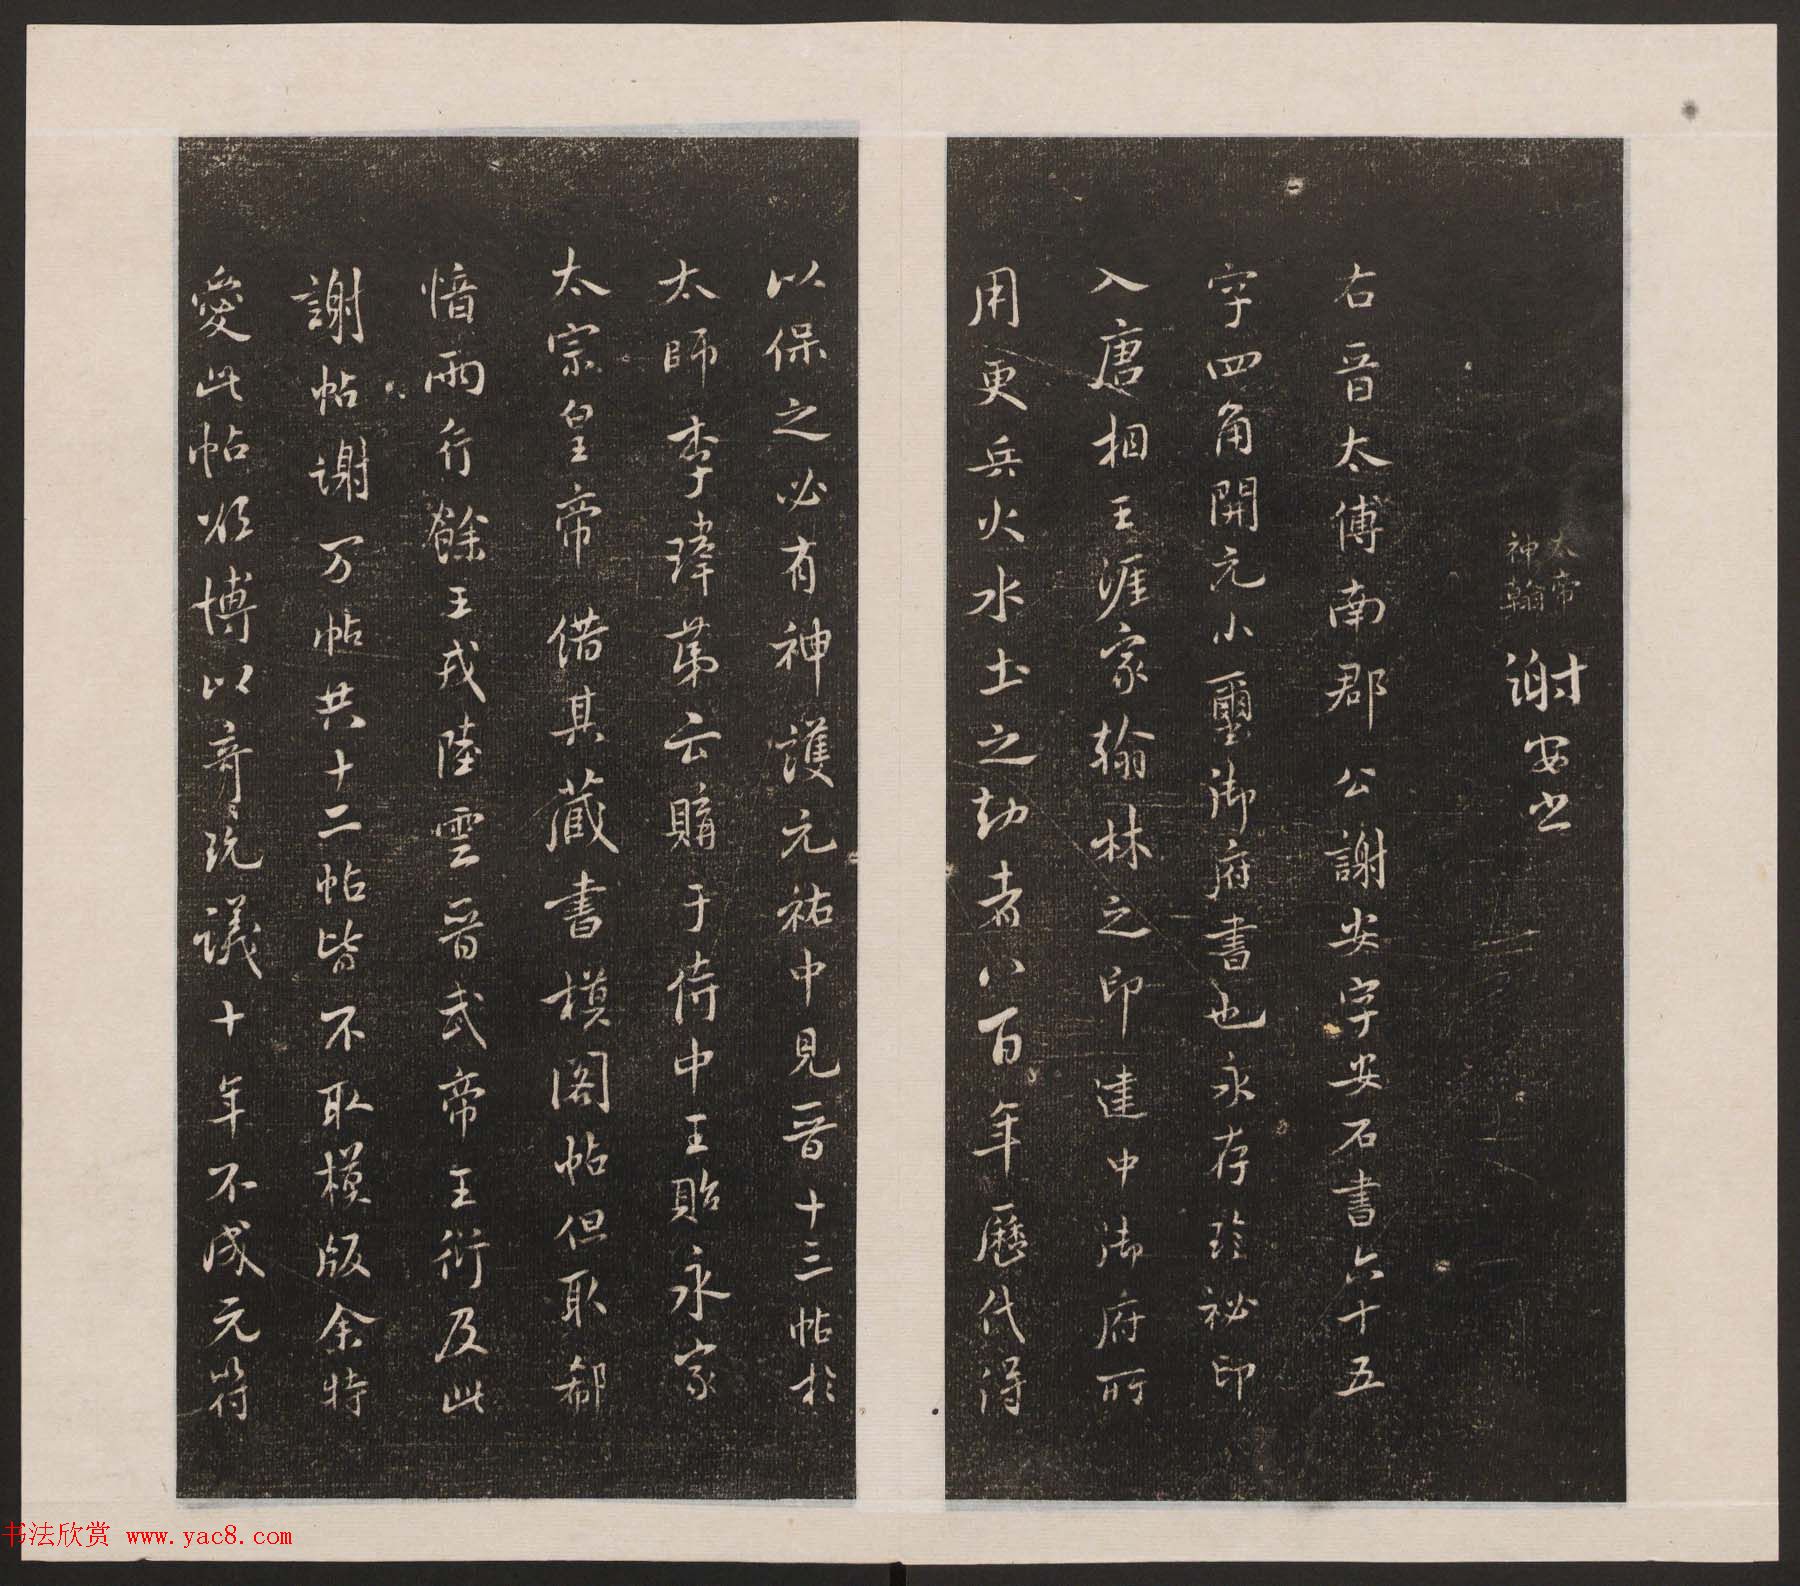 太帝
神翰
謝安書
右晉太傅南郡公謝安字安石書六十五
字四角開元小璽御府書也永存珍祕印
入唐相王涯家翰林之印建中御府所
用更兵火水土之劫者八百年歷代得
以保之必有神護元祐中見晉十三帖於
太師李瑋第云購于侍中王貽永家
太宗皇帝借其藏書模閣帖但取郗
愔兩行餘王戎陸雲晉武帝王衍及此
謝帖謝万帖共十二帖皆不取模版余特
愛此帖欲博以奇玩議十年不成元符
书法欣赏 www.yac8.com